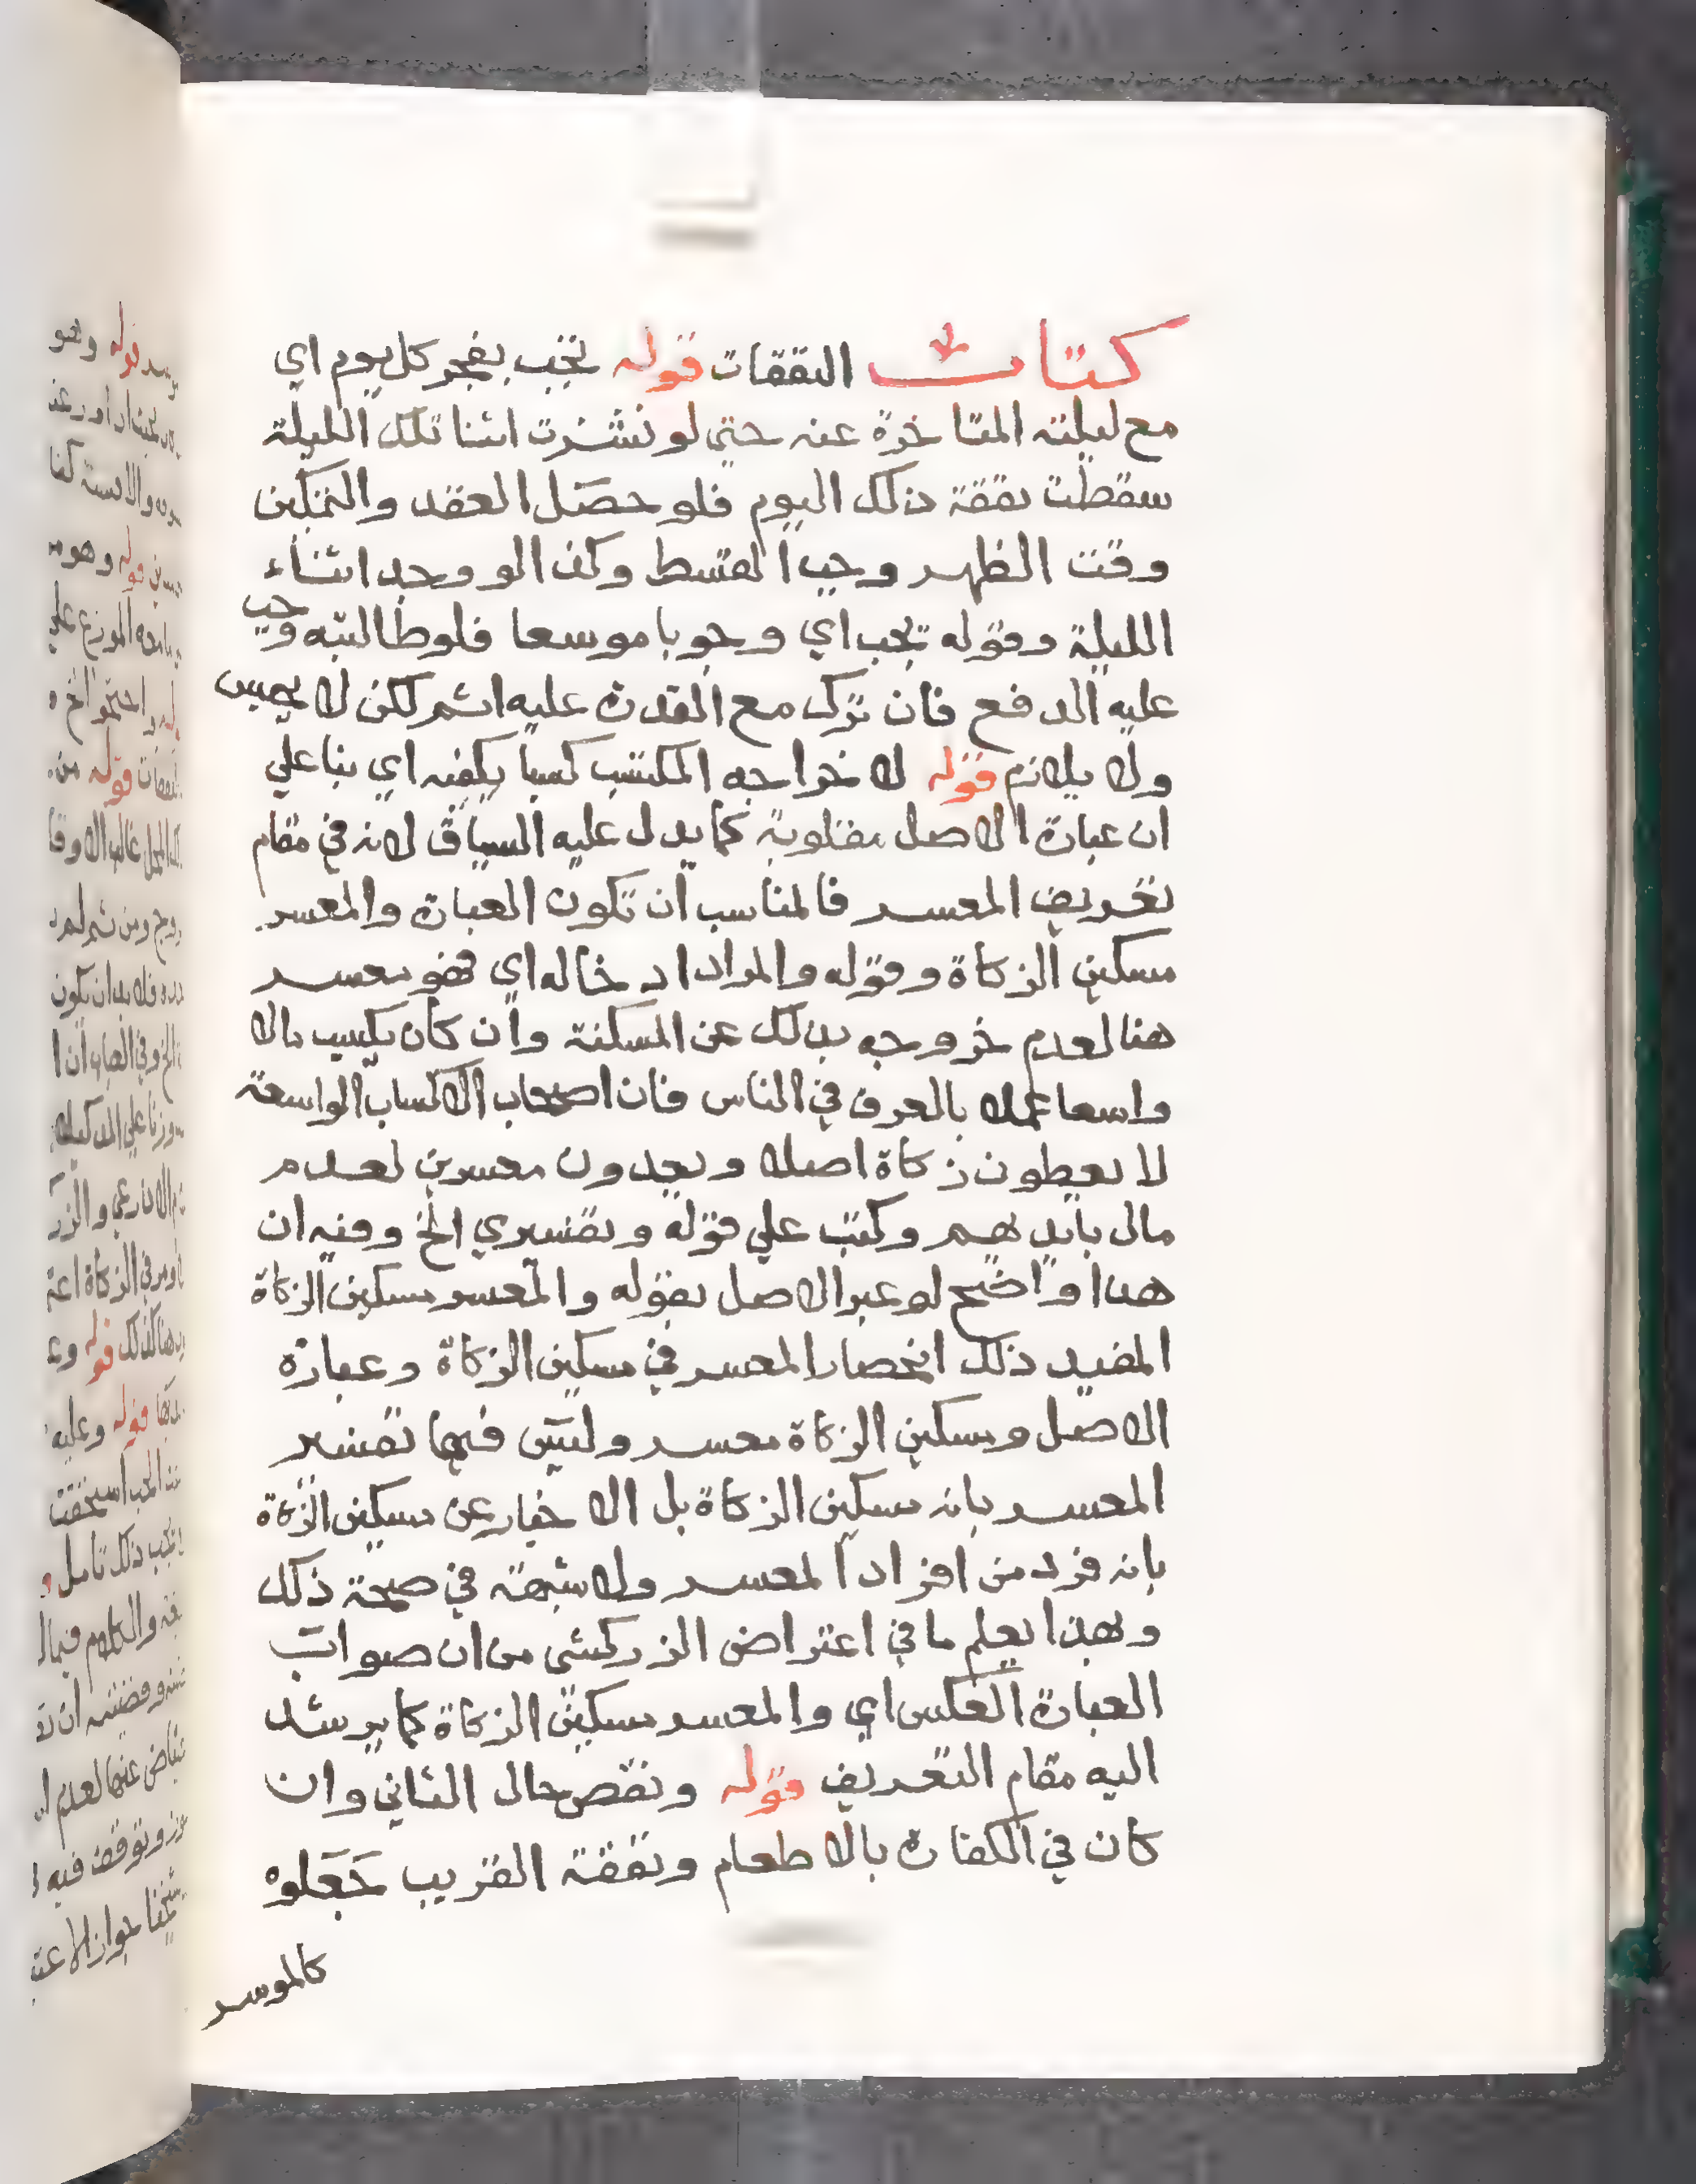 كتاب النفقات قوله تجب بفجر كل يوم اي
مع ليلته المتاخرة عنه حتي لو نشزت اثنا تلك الليلة
سقطت نفقة ذلك اليوم فلو حصل العقد والتمكين
وقت الظهر وجب القسط وكذا لو وجد اثناء
الليلة وقوله تجب اي وجوبا موسعا فلو طالبته وجب
عليه الدفع فان ترك مع القدرة عليه اثم لكن لا يحبس
ولا يلازم قوله لاخراجه المكتسب كسبا يكفيه اي بنا علي
ان عبارة الاصل مقلوبة كما يدل عليه السياق لانه في مقام
تعريف المعسر فالمناسب ان تكون العبارة والمعسر
مسكين الزكاة وقوله والمراد ادخاله اي فهو معسر
هنا لعدم خروجه بذلك عن المسكنة وان كان يكسب مالا
واسعا عملا بالعرف في الناس فان اصحاب الاكساب الواسعة
لا يعطون زكاة اصلا ويعدون معسرين لعدم
مال بايديهم وكتب علي قوله وتفسيري الخ وفيه ان
هذا واضح لو عبر الاصل بقوله والمعسر مسكين الزكاة
المفيد ذلك انحصار المعسر في مسكين الزكاة وعبارة
الاصل ومسكين الزكاة معسر وليس فيها تفسير
المعسر بانه مسكين الزكاة بل الاخبار عن مسكين الزكاة
بانه فرد من افراد المعسر ولا شبهة في صحة ذلك
وبهذا يعلم ما في اعتراض الزركشي من ان صواب
العبارة العكس اي والمعسر مسكين الزكاة كما يرشد
اليه مقام التعريف قوله ونقص حال الثاني وان
كان في الكفارة بالاطعام ونفقة القريب جعلوه
كالموسر